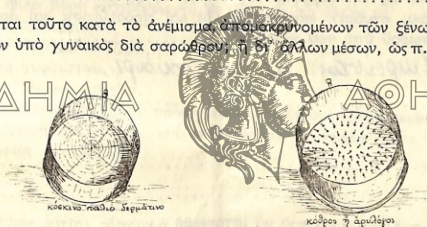 ται τοῦτο κατὰ τὸ ἀνέμισμα, ἀπομακρυνομένων τῶν ξένω
ν ὑπὸ γυναικὸς διὰ σαρώθρου; ἢ δι' ἄλλων μέσων, ὡς π.
ΔΗΜΙΑ ΑΘΗ
κόσκινο παλιὸ δερμάτινο
κόθρος ἢ ἀριλόγος